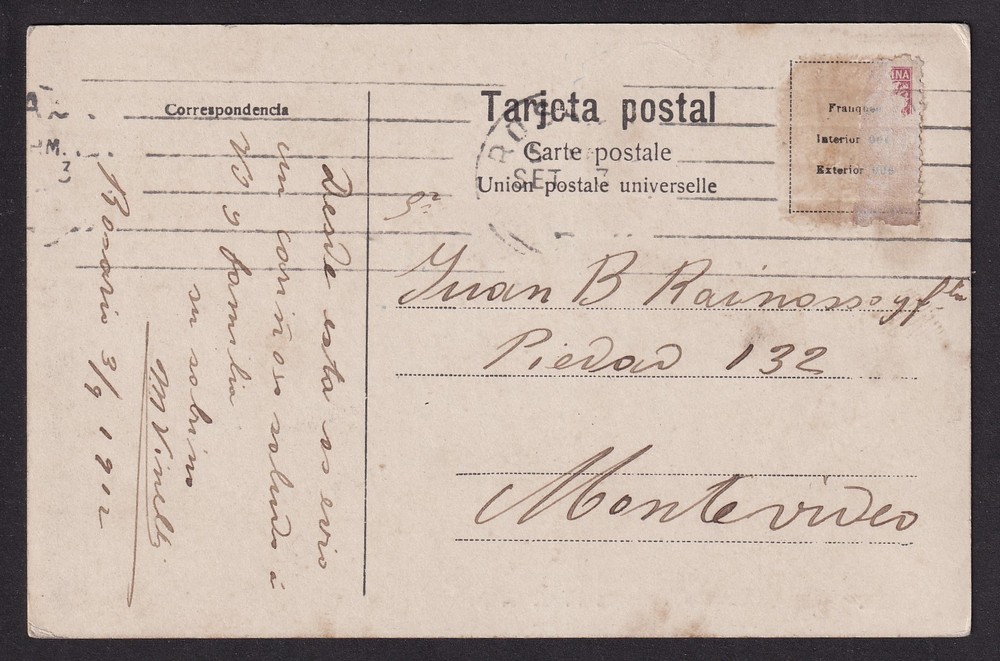 Correspondencia
Tarjeta postal
Carte postale
Union postale universelle
INA
Franqueo
Interior
Exterior
RO
SET
3
M.
3
Desde esta os envio
un cariñoso saludo á
Vd y familia
su sobrino
Rosario 3/9 1912
Sr
Juan B Rainosso y flia
Piedad 132
Montevideo